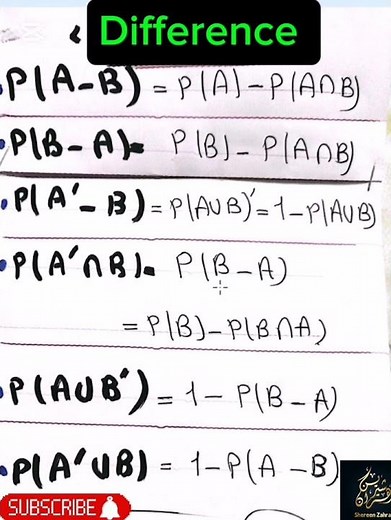 Difference
P(A-B) = P(A) - P(A∩B)
P(B-A)= P(B) - P(A∩B)
P(A'-B) = P(A∪B)' = 1-P(A∪B)
P(A'∩B)= P(B-A)
= P(B)-P(B∩A)
P(A∪B') = 1 - P(B-A)
P(A'∪B) = 1-P(A-B)
SUBSCRIBE
Shereen Zahra